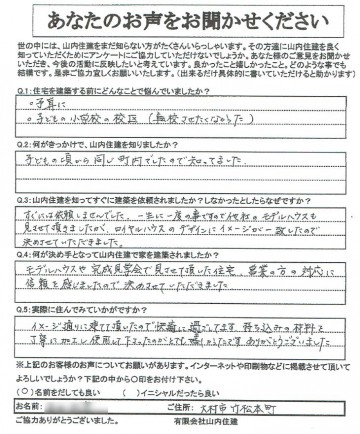 あなたのお声をお聞かせください
世の中には、山内住建をまだ知らない方がたくさんいらっしゃいます。その方達に山内住建を良く
知っていただくためにアンケートにご協力していただけないでしょうか。あなた様のご意見をお聞かせ
いただき、今後の活動に反映したいと考えています。良かったこと嬉しかったこと。どのような事でも
結構です。是非ご協力宜しくお願いいたします。(出来るだけ具体的に書いていただけると助かります)
Q.1:住宅を建築する前にどんなことで悩んでいましたか?
○予算に
○子どもの小学校の校区(転校させたくなかった)
Q.2:何がきっかけで、山内住建を知りましたか?
子どもの頃から同じ町内でしたので知ってました
Q.3:山内住建を知ってすぐに建築を依頼されましたか?しなかったとしたらなぜですか?
すぐには依頼しませんでした。一生に一度の事ですので他社のモデルハウスも
見させて頂きましたが、ロイヤルハウスのデザインにイメージが一致したので
決めさせていただきました。
Q.4:何が決め手となって山内住建で家を建築されましたか?
モデルハウスや完成見学会で見させて頂いた住宅、営業の方の対応に
信頼を感じましたので決めさせていただきました
Q.5:実際に住んでみていかがですか?
イメージ通りに建てて頂いたので快適に過ごしてます 持ち込みの材料も
丁寧に加工し使用して下さったのがとても嬉しかったです ありがとうございました
※上記のお客様のお声についてお願いがあります。インターネットや印刷物などに掲載させて頂いて
よろしいでしょうか?下記の中から○印をお付け下さい。
(○)名前をだしても良い ( )イニシャルだったら良い
お名前: ご住所: 大村市竹松本町
ご協力ありがとうございました。 有限会社山内住建